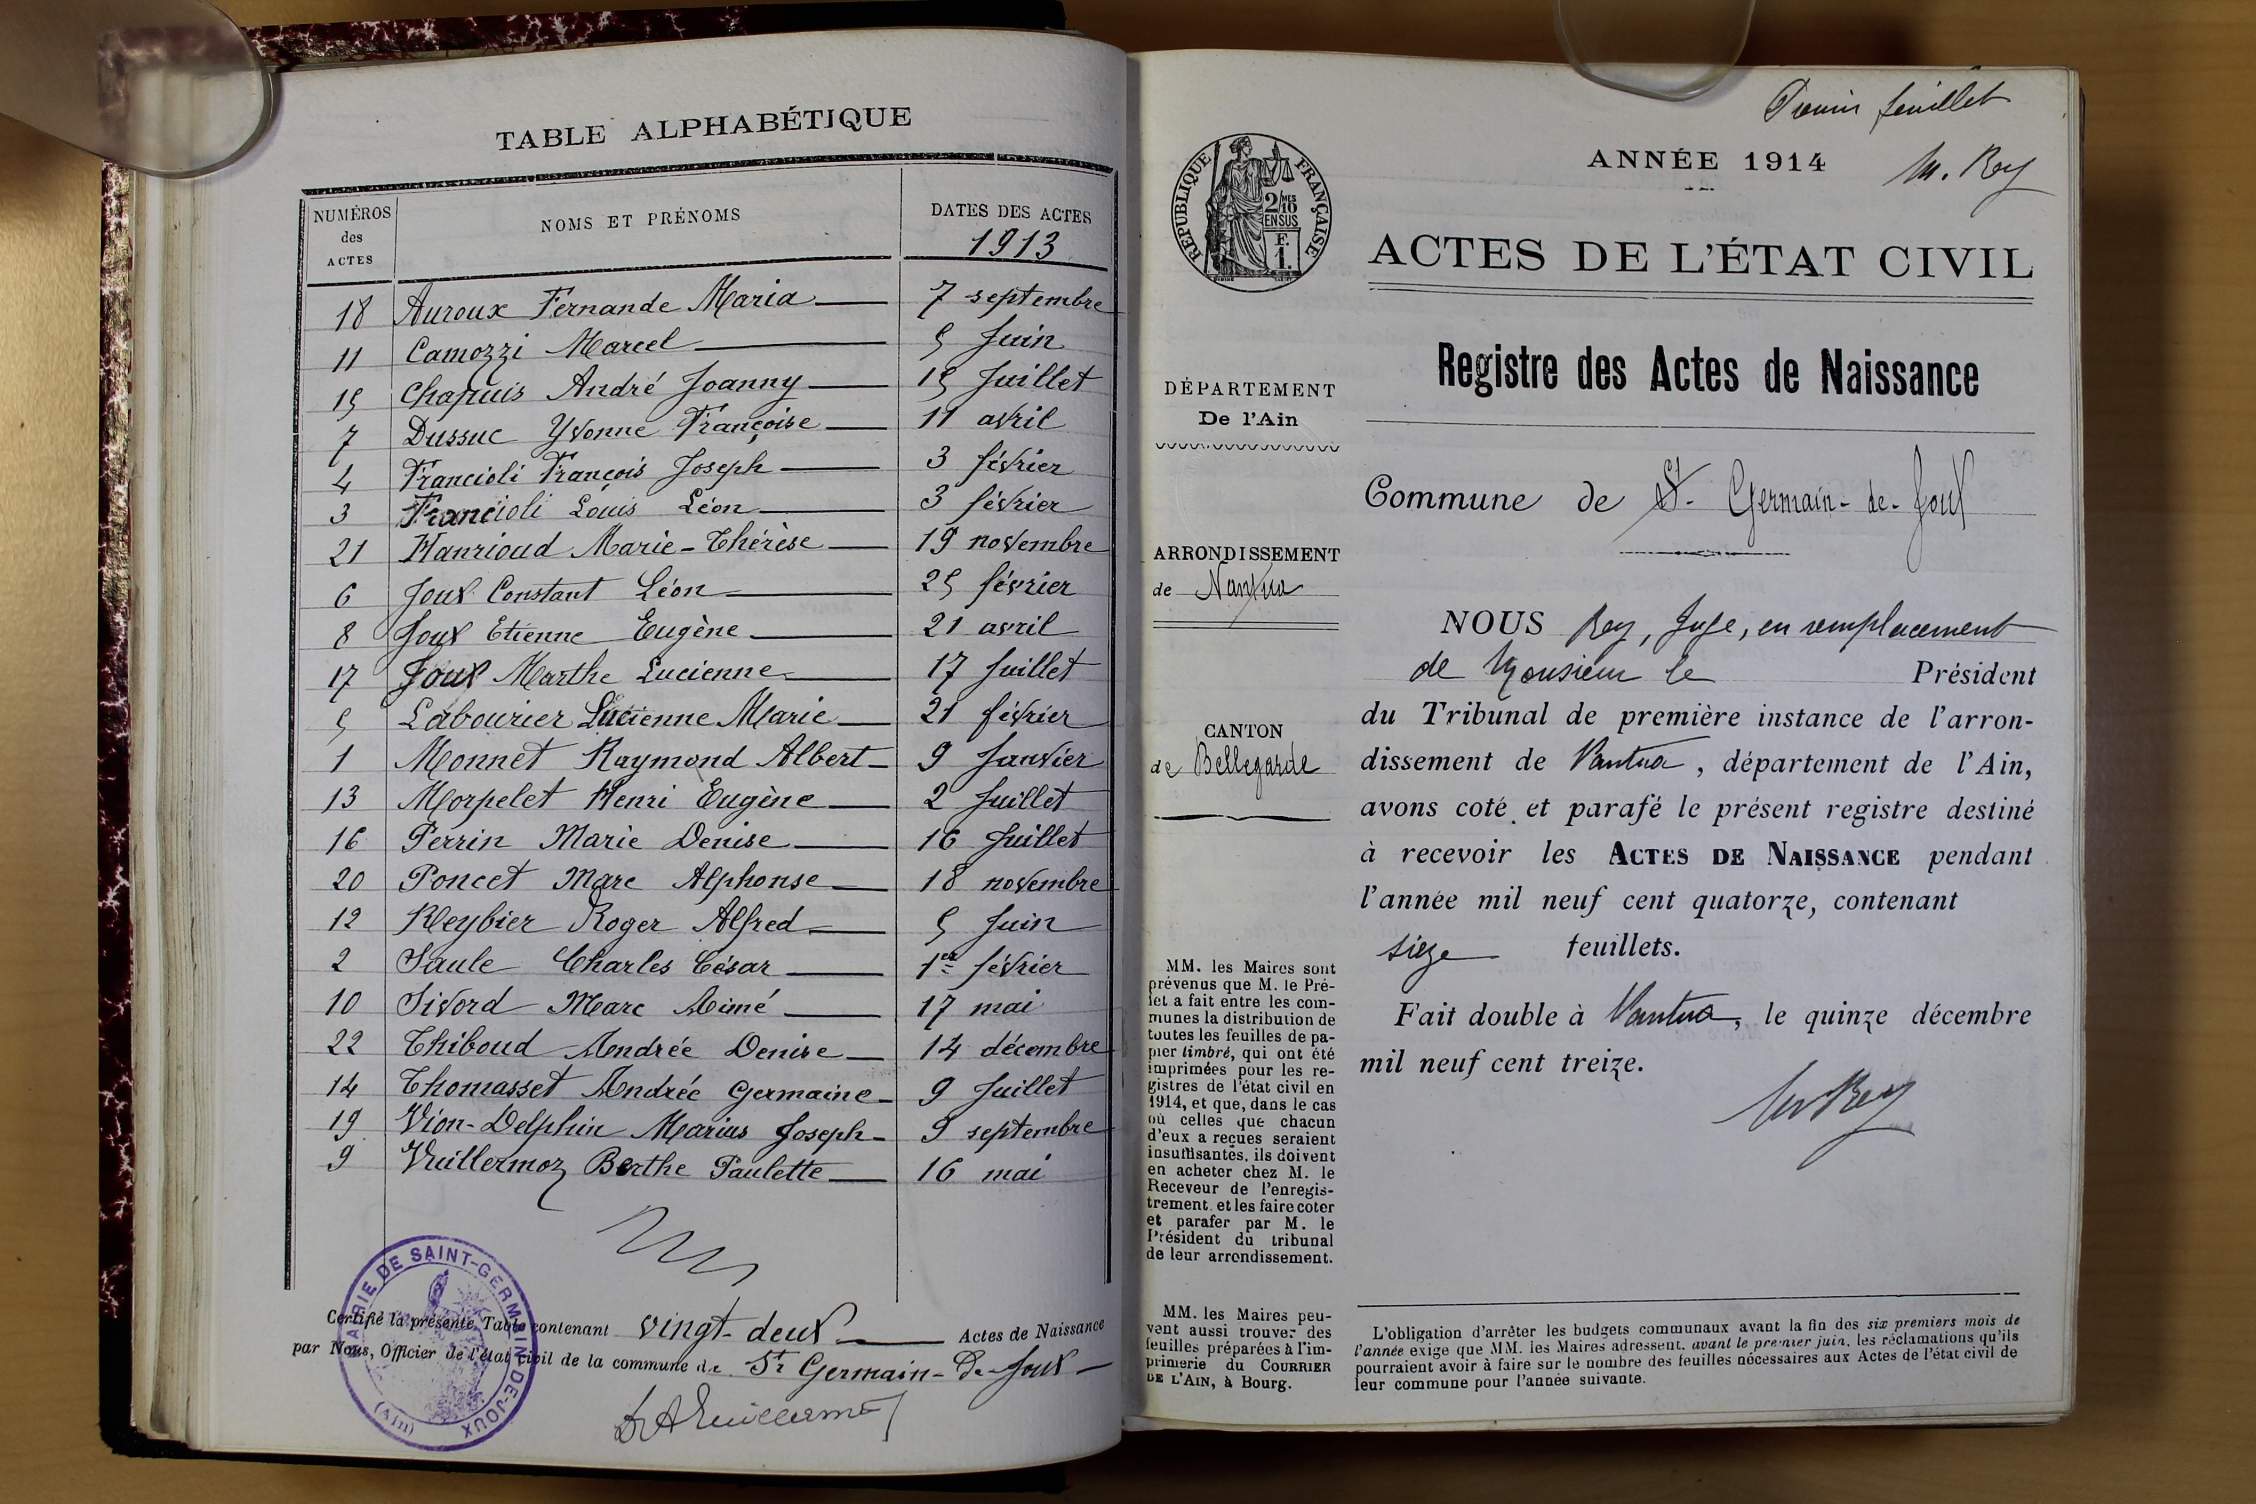 TABLE ALPHABÉTIQUE
NUMÉROS des ACTES
NOMS ET PRÉNOMS
DATES DES ACTES
1913
18 Auroux Fernande Maria 7 septembre
11 Camozzi Marcel 5 Juin
15 Chapuis André Joanny 15 Juillet
7 Dussuc Yvonne Françoise 11 avril
4 Francioli François Joseph 3 février
3 Francioli Louis Léon 3 février
21 Hanrioud Marie-Thérèse 19 novembre
6 Joux Constant Léon 25 février
8 Joux Etienne Eugène 21 avril
17 Joux Marthe Lucienne 17 Juillet
5 Labourier Lucienne Marie 21 février
1 Monnet Raymond Albert 9 Janvier
13 Morpelet Henri Eugène 2 Juillet
16 Perrin Marie Denise 16 Juillet
20 Poncet Marc Alphonse 18 novembre
12 Reybier Roger Alfred 5 Juin
2 Saule Charles César 1er février
10 Sivord Marc Aimé 17 mai
22 Thiboud Andrée Denise 14 décembre
14 Thomasset Andrée Germaine 9 Juillet
19 Vion-Delphin Marius Joseph 9 septembre
9 Vuillermoz Berthe Paulette 16 mai
MAIRIE DE SAINT-GERMAIN-DE-JOUX
(Ain)
Certifié la présente Table contenant vingt-deux Actes de Naissance
par Nous, Officier de l'état civil de la commune de St Germain-de-Joux
Premier feuillet
ANNÉE 1914
M. Rey
RÉPUBLIQUE FRANÇAISE
2/10 MES
EN SUS
F.
1.
ACTES DE L'ÉTAT CIVIL
Registre des Actes de Naissance
DÉPARTEMENT
De l'Ain
Commune de St-Germain-de-Joux
ARRONDISSEMENT
de Nantua
CANTON
de Bellegarde
NOUS Rey, Juge, en remplacement
de Monsieur le Président
du Tribunal de première instance de l'arron-
dissement de Nantua, département de l'Ain,
avons coté et parafé le présent registre destiné
à recevoir les ACTES DE NAISSANCE pendant
l'année mil neuf cent quatorze, contenant
seize feuillets.
Fait double à Nantua, le quinze décembre
mil neuf cent treize.
M. Rey
MM. les Maires sont
prévenus que M. le Pré-
fet a fait entre les com-
munes la distribution de
toutes les feuilles de pa-
pier timbré, qui ont été
imprimées pour les re-
gistres de l'état civil en
1914, et que, dans le cas
où celles que chacun
d'eux a reçues seraient
insuffisantes, ils doivent
en acheter chez M. le
Receveur de l'enregis-
trement et les faire coter
et parafer par M. le
Président du tribunal
de leur arrondissement.
MM. les Maires peu-
vent aussi trouver des
feuilles préparées à l'im-
primerie du COURRIER
DE L'AIN, à Bourg.
L'obligation d'arrêter les budgets communaux avant la fin des six premiers mois de
l'année exige que MM. les Maires adressent, avant le premier juin, les réclamations qu'ils
pourraient avoir à faire sur le nombre des feuilles nécessaires aux Actes de l'état civil de
leur commune pour l'année suivante.